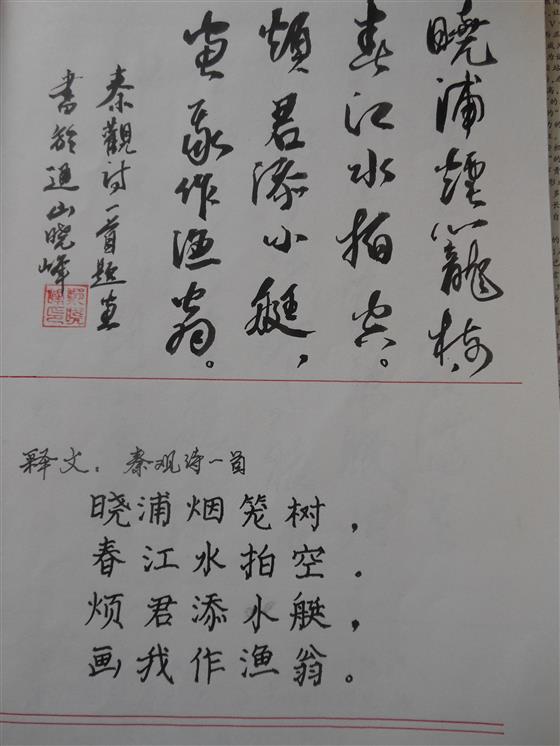 曉浦煙籠樹，
春江水拍空。
煩君添小艇，
畫我作漁翁。
秦觀詩一首題畫
書於通山晓峰
释文：秦观诗一首
晓浦烟笼树，
春江水拍空。
烦君添水艇，
画我作渔翁。